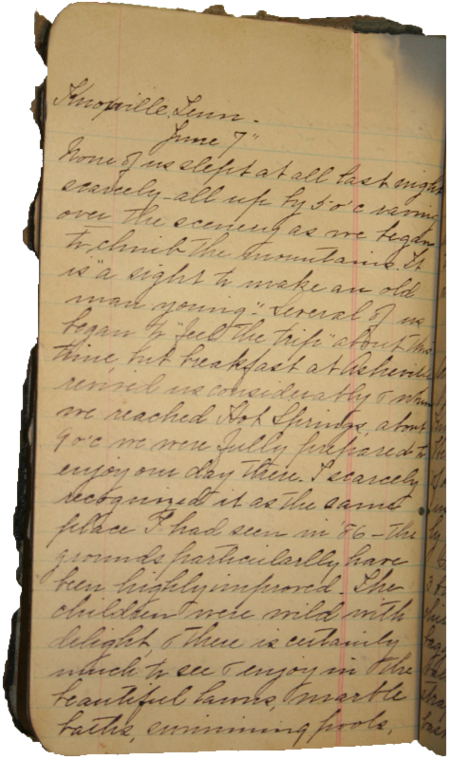 Knoxville, Tenn.
June 7"
None of us slept at all last night
scarcely - all up by 5 o'c raving
over the scenery as we began
to climb the mountains. It
is "a sight to make an old
man young". Several of us
began to "feel the trip" about this
time but breakfast at Asheville
revived us considerably & when
we reached Hot Springs, about
9 o'c we were fully prepared to
enjoy our day there. I scarcely
recognized it as the same
place I had seen in '86 - the
grounds particularlly have
been highly improved. The
children were wild with
delight, & there is certainly
much to see & enjoy in the
beautiful lawns, marble
baths, swimming pools,